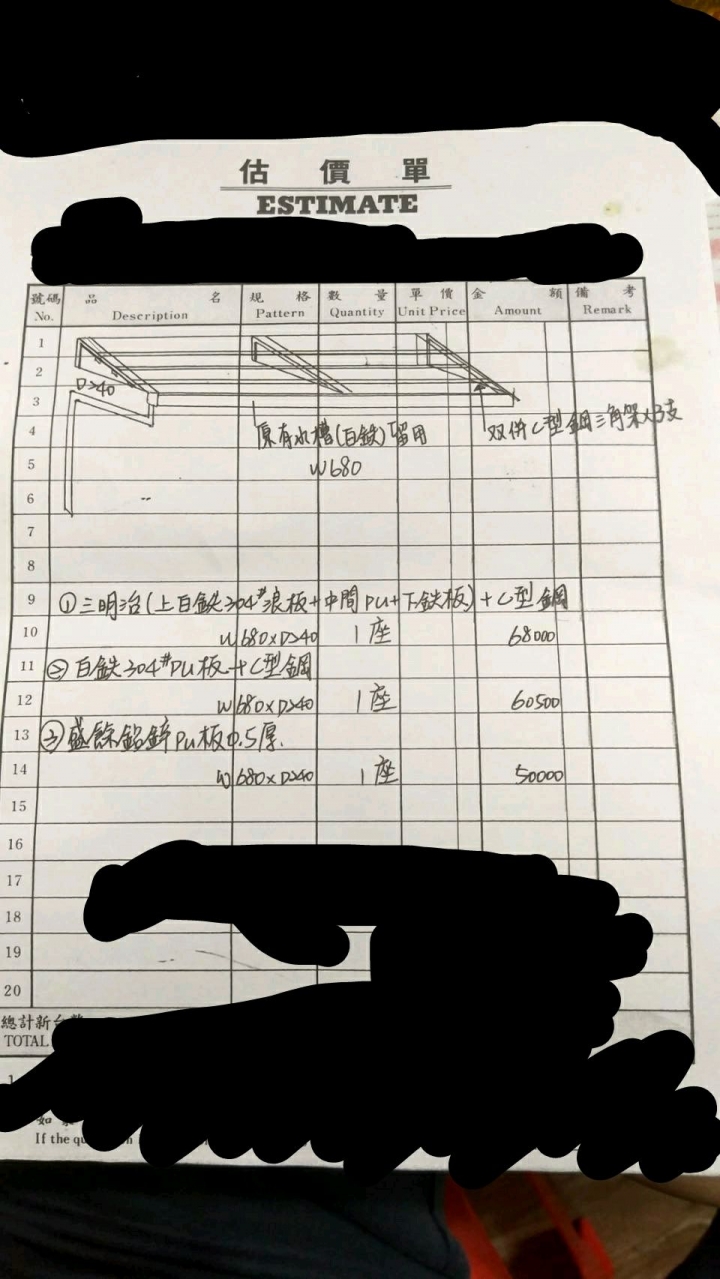 估價單
ESTIMATE
號碼 品名 規格 數量 單價 金額 備考
No. Description Pattern Quantity Unit Price Amount Remark
1
2
D240
3
4 原有水槽(白鉄)留用 双併C型鋼三角架x3支
5 W680
6
7
8
9 ①三明治(上白鉄304#浪板+中間PU+下鉄板)+C型鋼
10 W680xD240 1座 68000
11 ②白鉄304#PU板+C型鋼
12 W680xD240 1座 60500
13 ③盛餘鋁鋅PU板0.5厚.
14 W680xD240 1座 50000
15
16
17
18
19
20
總計新台
TOTAL
1
If the